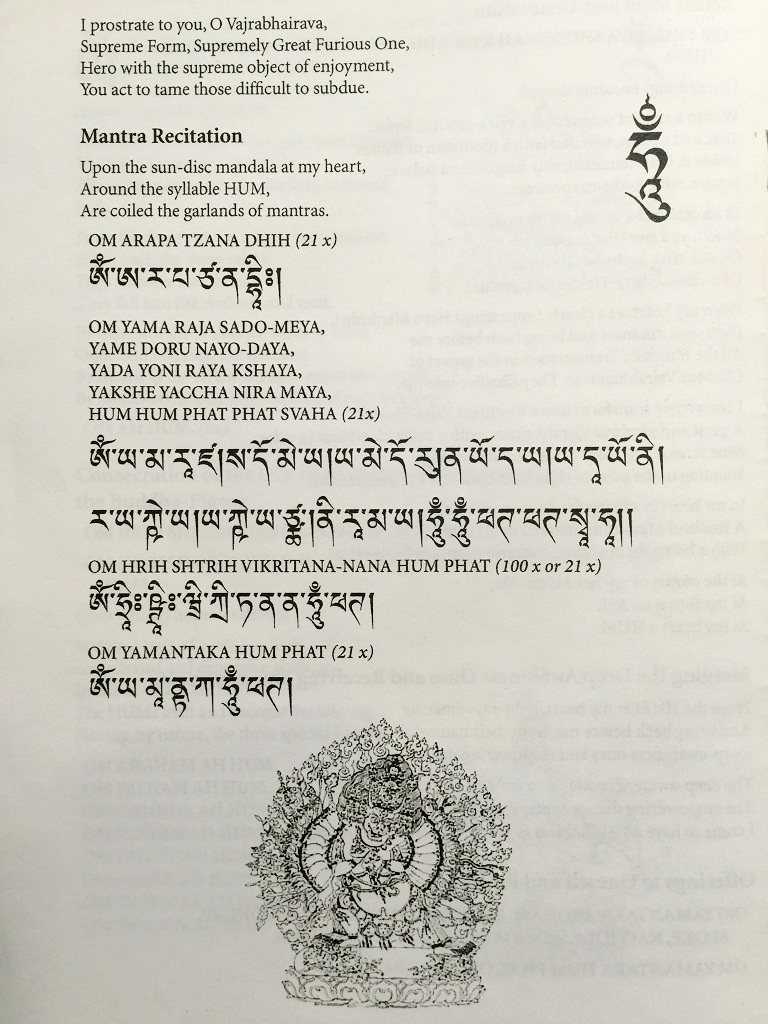 I prostrate to you, O Vajrabhairava,
Supreme Form, Supremely Great Furious One,
Hero with the supreme object of enjoyment,
You act to tame those difficult to subdue.
Mantra Recitation
Upon the sun-disc mandala at my heart,
Around the syllable HUM,
Are coiled the garlands of mantras.
ཧཱུྃ
OM ARAPA TZANA DHIH (21 x)
ཨོཾ་ཨ་ར་པ་ཙ་ན་དྷཱིཿ།
OM YAMA RAJA SADO-MEYA,
YAME DORU NAYO-DAYA,
YADA YONI RAYA KSHAYA,
YAKSHE YACCHA NIRA MAYA,
HUM HUM PHAT PHAT SVAHA (21x)
ཨོཾ་ཡ་མ་རཱ་ཛ།ས་དོ་མེ་ཡ།ཡ་མེ་དོ་རུ།ན་ཡོ་ད་ཡ།ཡ་དཱ་ཡོ་ནི།
ར་ཡ་ཀྵེ་ཡ།ཡ་ཀྵེ་ཡ་ཙྪ།ནི་རཱ་མ་ཡ།ཧཱུྃ་ཧཱུྃ་ཕཊ་ཕཊ་སྭཱ་ཧཱ།།
OM HRIH SHTRIH VIKRITANA-NANA HUM PHAT (100 x or 21 x)
ཨོཾ་ཧྲཱིཿ་ཥྚྲཱིཿ་ཝི་ཀྲྀ་ཏ་ན་ན་ཧཱུྃ་ཕཊ།
OM YAMANTAKA HUM PHAT (21 x)
ཨོཾ་ཡ་མཱ་ནྟ་ཀ་ཧཱུྃ་ཕཊ།